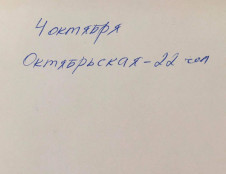 4 октября
Октябрьская - 22 чел